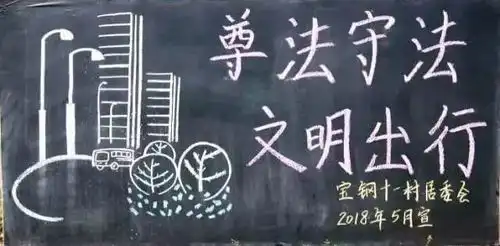 尊法守法
文明出行
宝钢十一村居委会
2018年5月宣